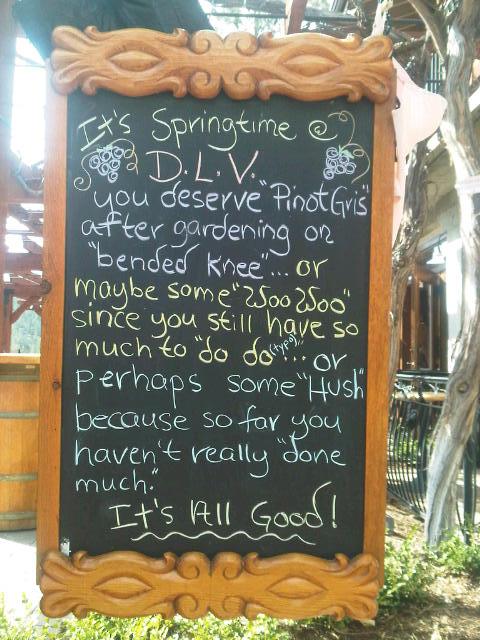 It's Springtime @
D.L.V.
you deserve "Pinot Gris"
after gardening on
"bended knee"... or
maybe some "Woo Woo"
since you still have so
much to "do do (typo)"... or
perhaps some "Hush"
because so far you
haven't really "done
much."
It's All Good!